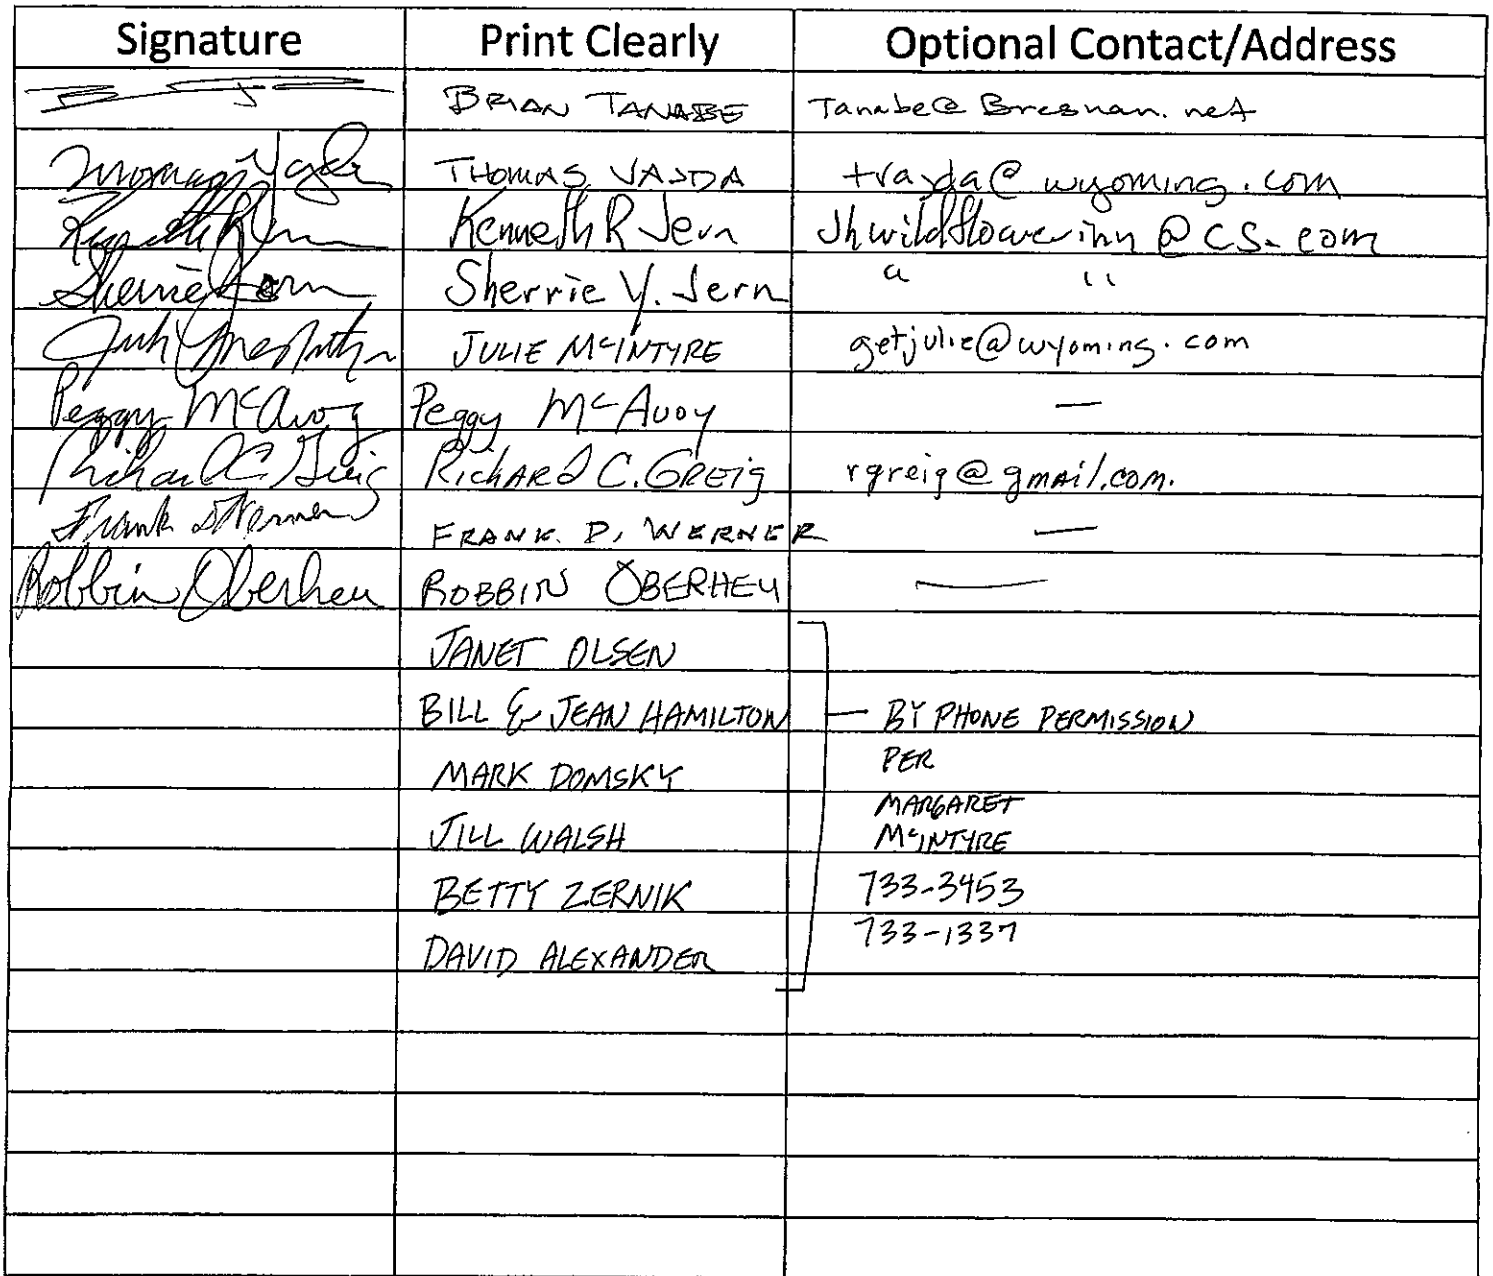 Signature Print Clearly Optional Contact/Address
BRIAN TANABE Tanabe@Bresnan.net
THOMAS VAJDA tvajda@wyoming.com
Kenneth R Jern Jhwildflowerinn@cs.com
Sherrie Jern Sherrie Y. Jern " "
JULIE McINTYRE getjulie@wyoming.com
Peggy McAvoy Peggy McAvoy —
Richard C. Greig RichARd C. GREig rgreig@gmail.com.
Frank D Werner FRANK. D. WERNER —
Robbin Oberheu ROBBIN OBERHEU —
JANET OLSEN
BILL & JEAN HAMILTON — BY PHONE PERMISSION
MARK DOMSKY PER
MARGARET
JILL WALSH McINTYRE
BETTY ZERNIK 733-3453
DAVID ALEXANDER 733-1337